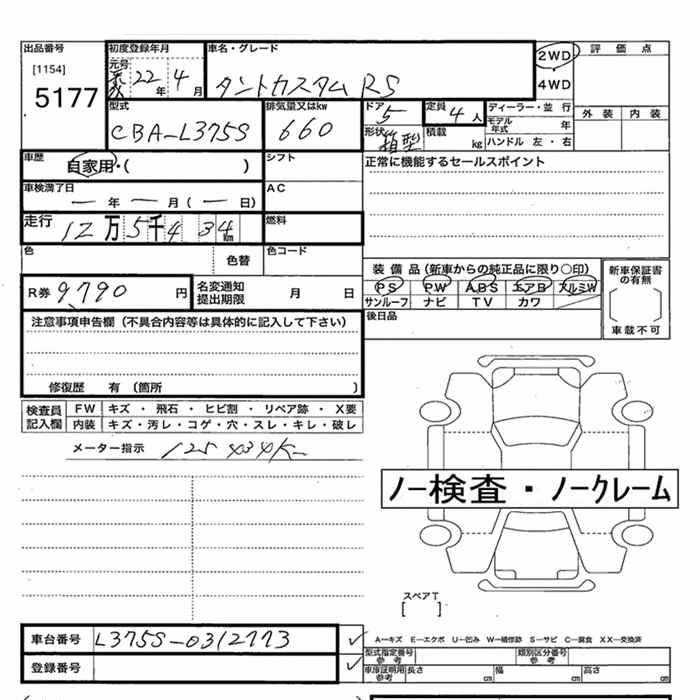 出品番号 初度登録年月 車名・グレード 2WD 評価点
[1154] 元号 22年 4月 タントカスタム RS 4WD
5177
型式 排気量又はkw ドア 5 定員 4人 ディーラー・並行 外装 内装
CBA-L375S 660 形状 箱型 積載 kg モデル年式 年
ハンドル 左・右
車歴 自家用・( ) シフト 正常に機能するセールスポイント
車検満了日 AC
ー 年 ー 月 ( ー 日)
走行 12万5千4 34 km 燃料
色 色替 色コード
装備品 (新車からの純正品に限り○印) 新車保証書の有無
R券 9,790 円 名変通知提出期限 月 日 PS PW ABS エアB アルミW
サンルーフ ナビ TV カワ 車載不可
注意事項申告欄 (不具合内容等は具体的に記入して下さい) 後日品
修復歴 有 〔箇所 〕
検査員記入欄 FW キズ ・ 飛石 ・ ヒビ割 ・ リペア跡 ・ X要
内装 キズ・汚レ・コゲ・穴・スレ・キレ・破レ
メーター指示 125434K
ノー検査・ノークレーム
スペアT
[ ]
車台番号 L375S-0312773 ✓ A―キズ E―エクボ U―凹み W―補修跡 S―サビ C―腐食 XX―交換済
型式指定番号 参考 類別区分番号 参考
登録番号 ✓ 車庫証明用 参考 長さ cm 幅 cm 高さ cm